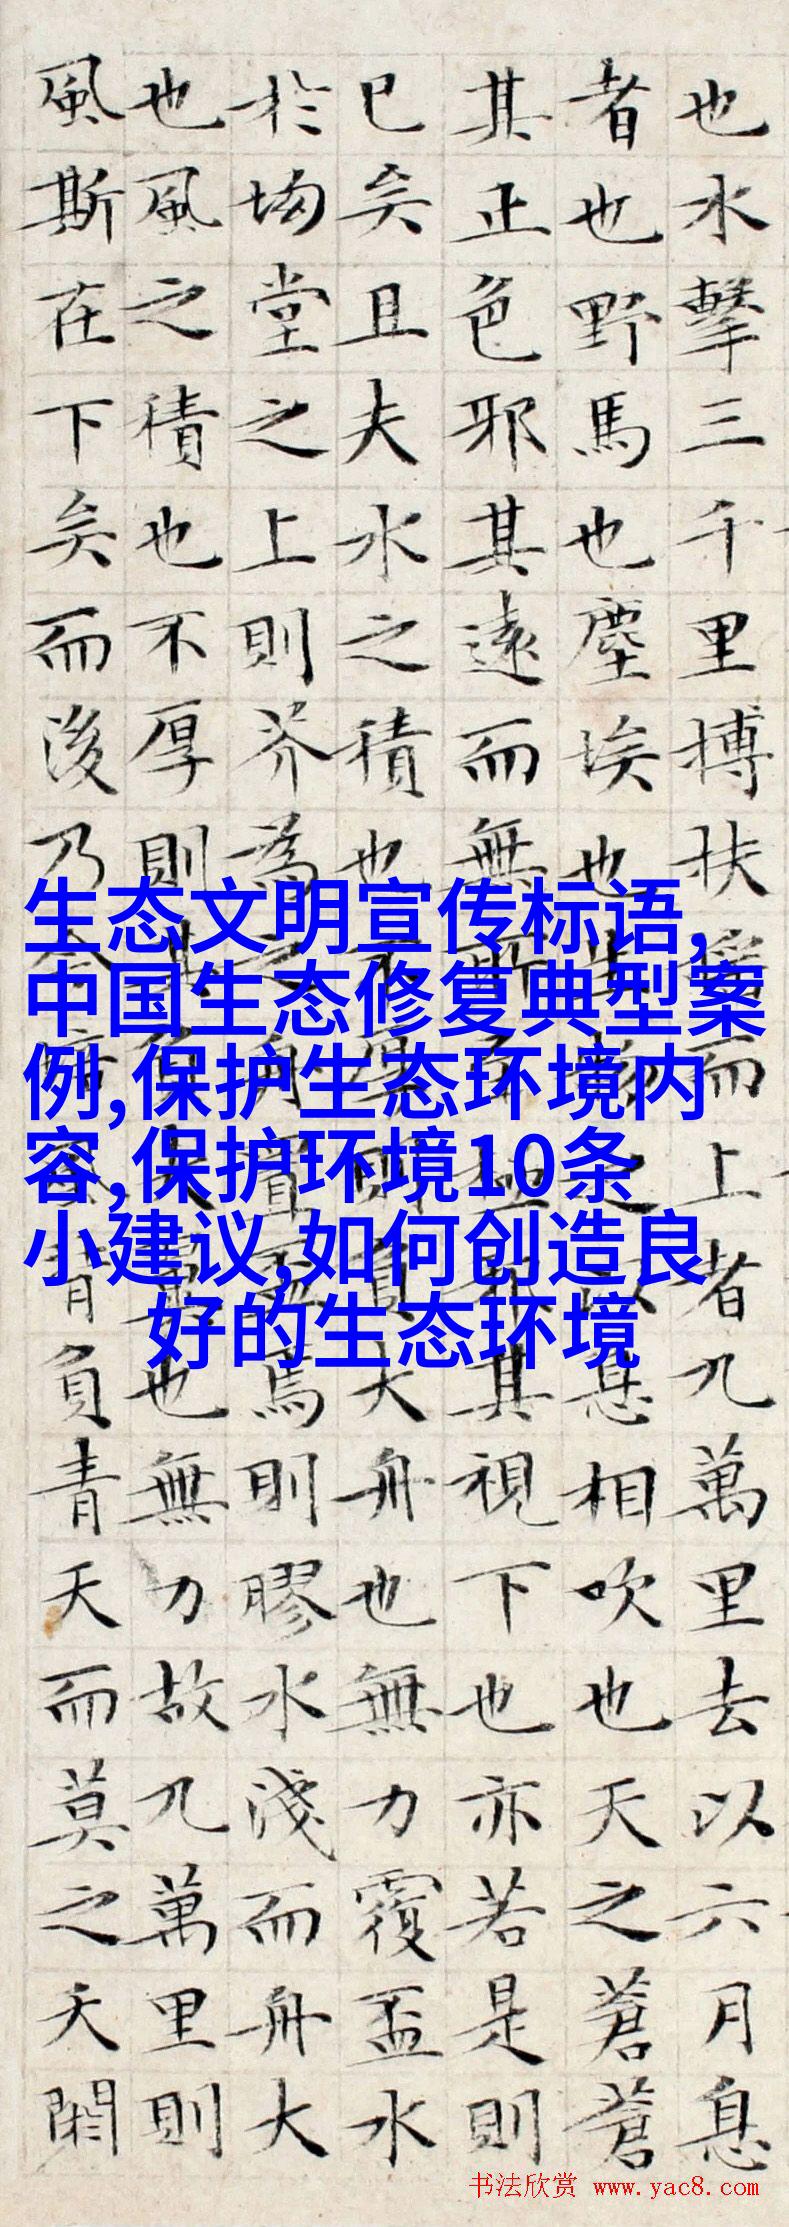 也水擊三千里搏扶搖而上者九萬里去以六月息
者也野馬也塵埃也生物之以息相吹也天之蒼蒼
其正色邪其遠而無所至極邪其視下也亦若是則
已矣且夫水之積也不厚則負大舟也無力覆盃水
於坳堂之上則芥為之舟置盃焉則膠水淺而舟大
也風之積也不厚則其負大翼也無力故九萬里則
風斯在下矣而後乃今培風背負青天而莫之夭閼
生态文明宣传标语,
中国生态修复典型案
例,保护生态环境内
容,保护环境10条
小建议,如何创造良
好的生态环境
书法欣赏 www.yac8.com